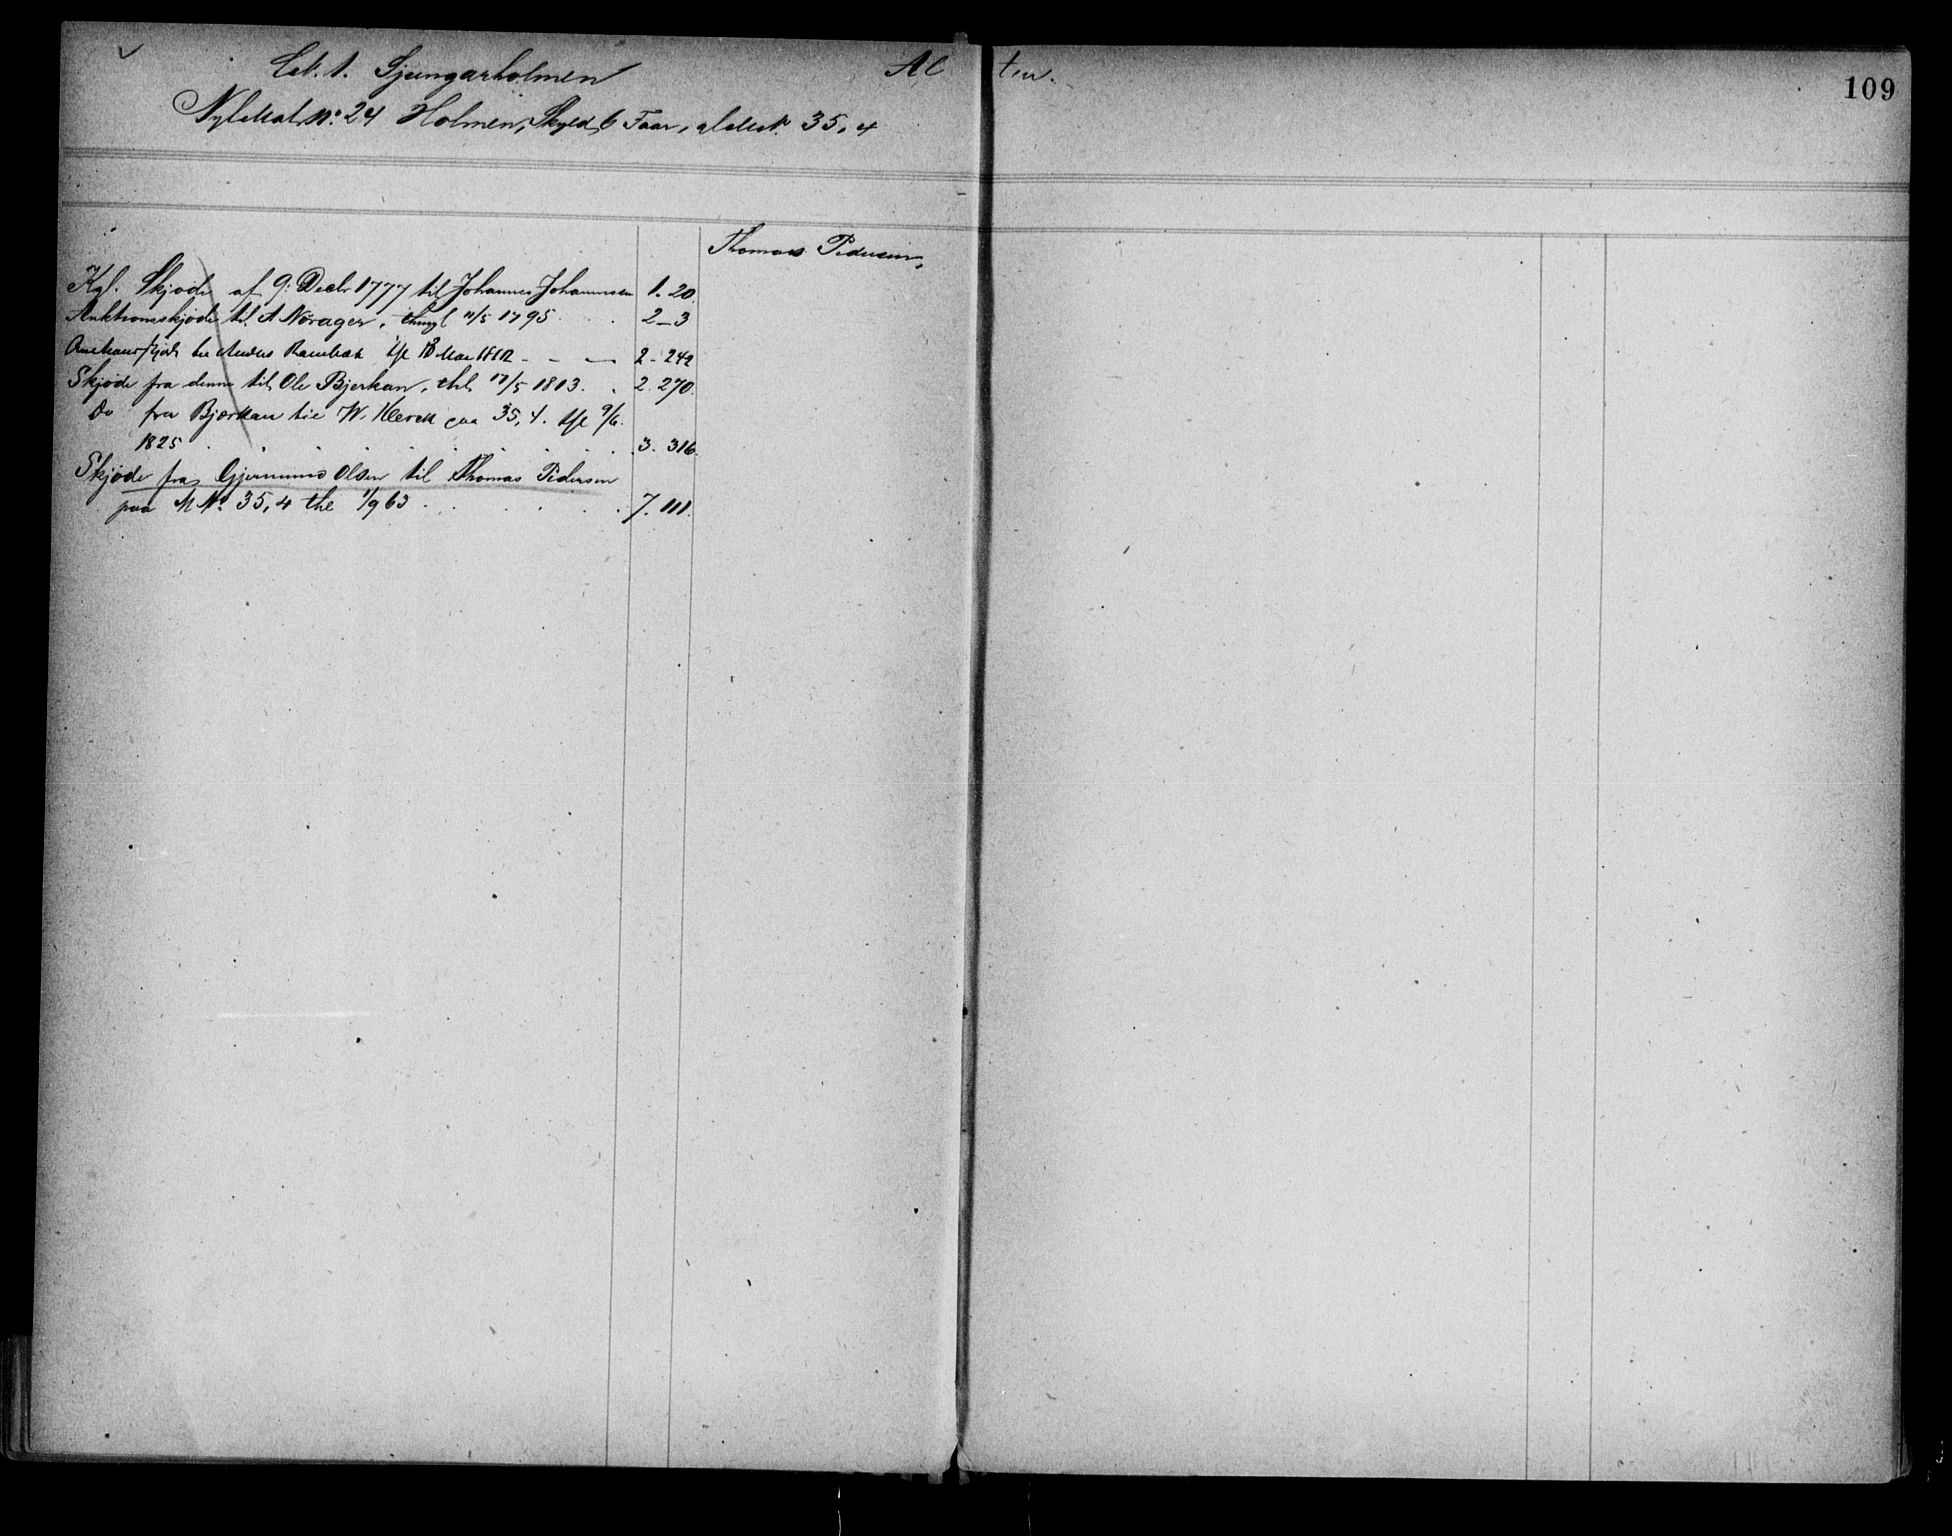 109
Lit. 1. Gjeungarholmen
Al ten.
Nyt Mat. No. 24 Holmen, Skyld 6 Faar, gl Mat. 35, 4
Thomas Pedersen,
Kgl. Skjøde af 9. Decbr 1777 til Johannes Johannesen 1. 20
Auktionsskjøde til A Norager, thingl 11/5 1795 2_3
Auctionsskjøde til Anders Rambæk thl 18 Mai 1812 - - - 2 - 249
Skjøde fra denne til Ole Bjerkan, thl 17/5 1813. . 2. 270.
Do fra Bjerkan til W. Klerck paa 35, 4. thl 9/6.
1825 . . . . . . . . 3. 316.
Skjøde fra Gjermund Olsen til Thomas Pedersen
paa M No. 35, 4 thl 1/9 63 . . . . . 7. 111.